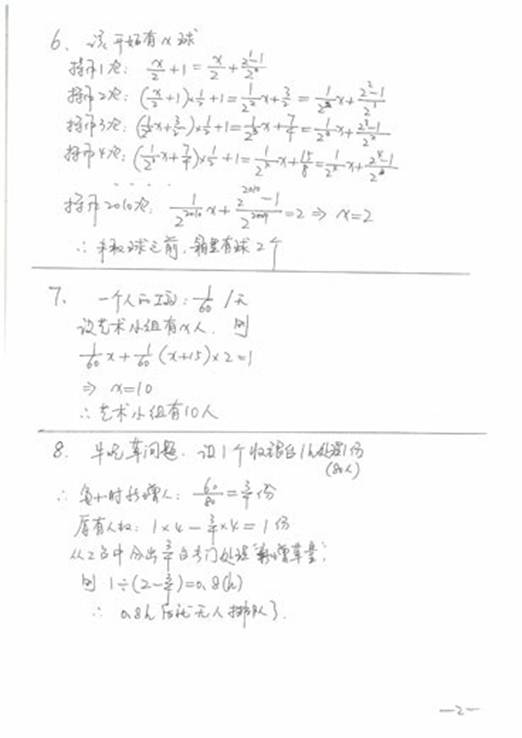 6、设开始有x球
操作1次: x/2 + 1 = x/2 + (2¹-1)/2⁰
操作2次: (x/2 + 1)×1/2 + 1 = 1/2² x + 3/2 = 1/2² x + (2²-1)/2¹
操作3次: (1/2² x + 3/2)×1/2 + 1 = 1/2³ x + 7/4 = 1/2³ x + (2³-1)/2²
操作4次: (1/2³ x + 7/4)×1/2 + 1 = 1/2⁴ x + 15/8 = 1/2⁴ x + (2⁴-1)/2³
· · · ·
操作2010次: 1/2²⁰¹⁰ x + (2²⁰¹⁰-1)/2²⁰⁰⁹ = 2 ⇒ x=2
∴ 未取球之前,箱里有球2个
7、 一个人的工效: 1/60 /天
设艺术小组有x人, 则
1/60 x + 1/60 (x+15)×2=1
⇒ x=10
∴ 艺术小组有10人
8. 牛吃草问题. 设1个收银台1h处理1份
(80人)
∴ 每小时新增人: 60/80 = 3/4 份
原有人数: 1×4 - 3/4×4 = 1份
从2台中分出3/4台专门处理"新增草量",
则 1÷(2-3/4)=0.8(h)
∴ 0.8h后就无人排队了.
—2—